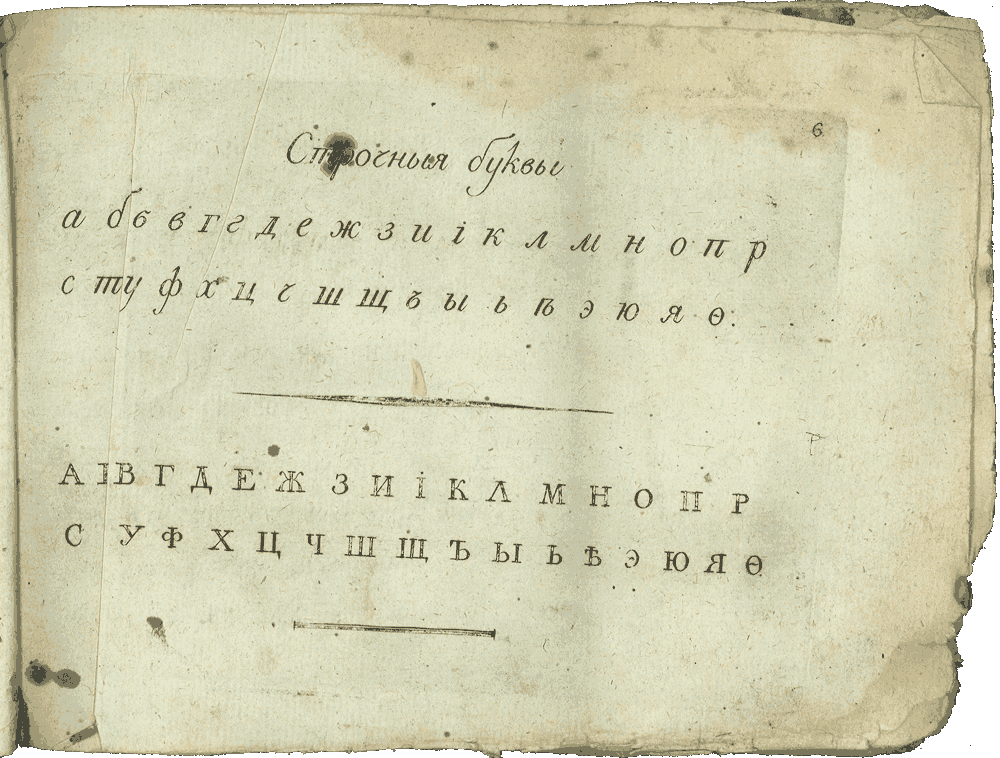 6
Строчныя буквы
а б в в г г д е ж з и і к л м н о п р
с т у ф х ц ч ш щ ъ ы ь ѣ э ю я ѳ.
А В Г Д Е Ж З И І К Л М Н О П Р
С У Ф Х Ц Ч Ш Щ Ъ Ы Ь Ѣ Э Ю Я Ѳ